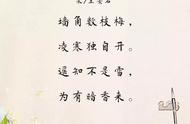 宋/王安石
墙角数枝梅，
凌寒独自开。
遥知不是雪，
为有暗香来。